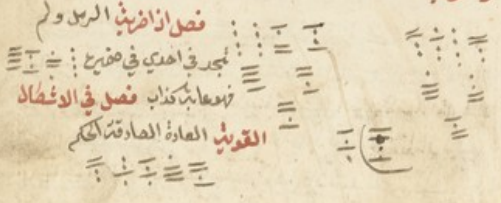 فصل اذا ضربت الرمل ولم
تجد في احدي في ضميرك
فهو غايب كذاب فصل في الاشكال
القوية العادة الصادقة الحكم